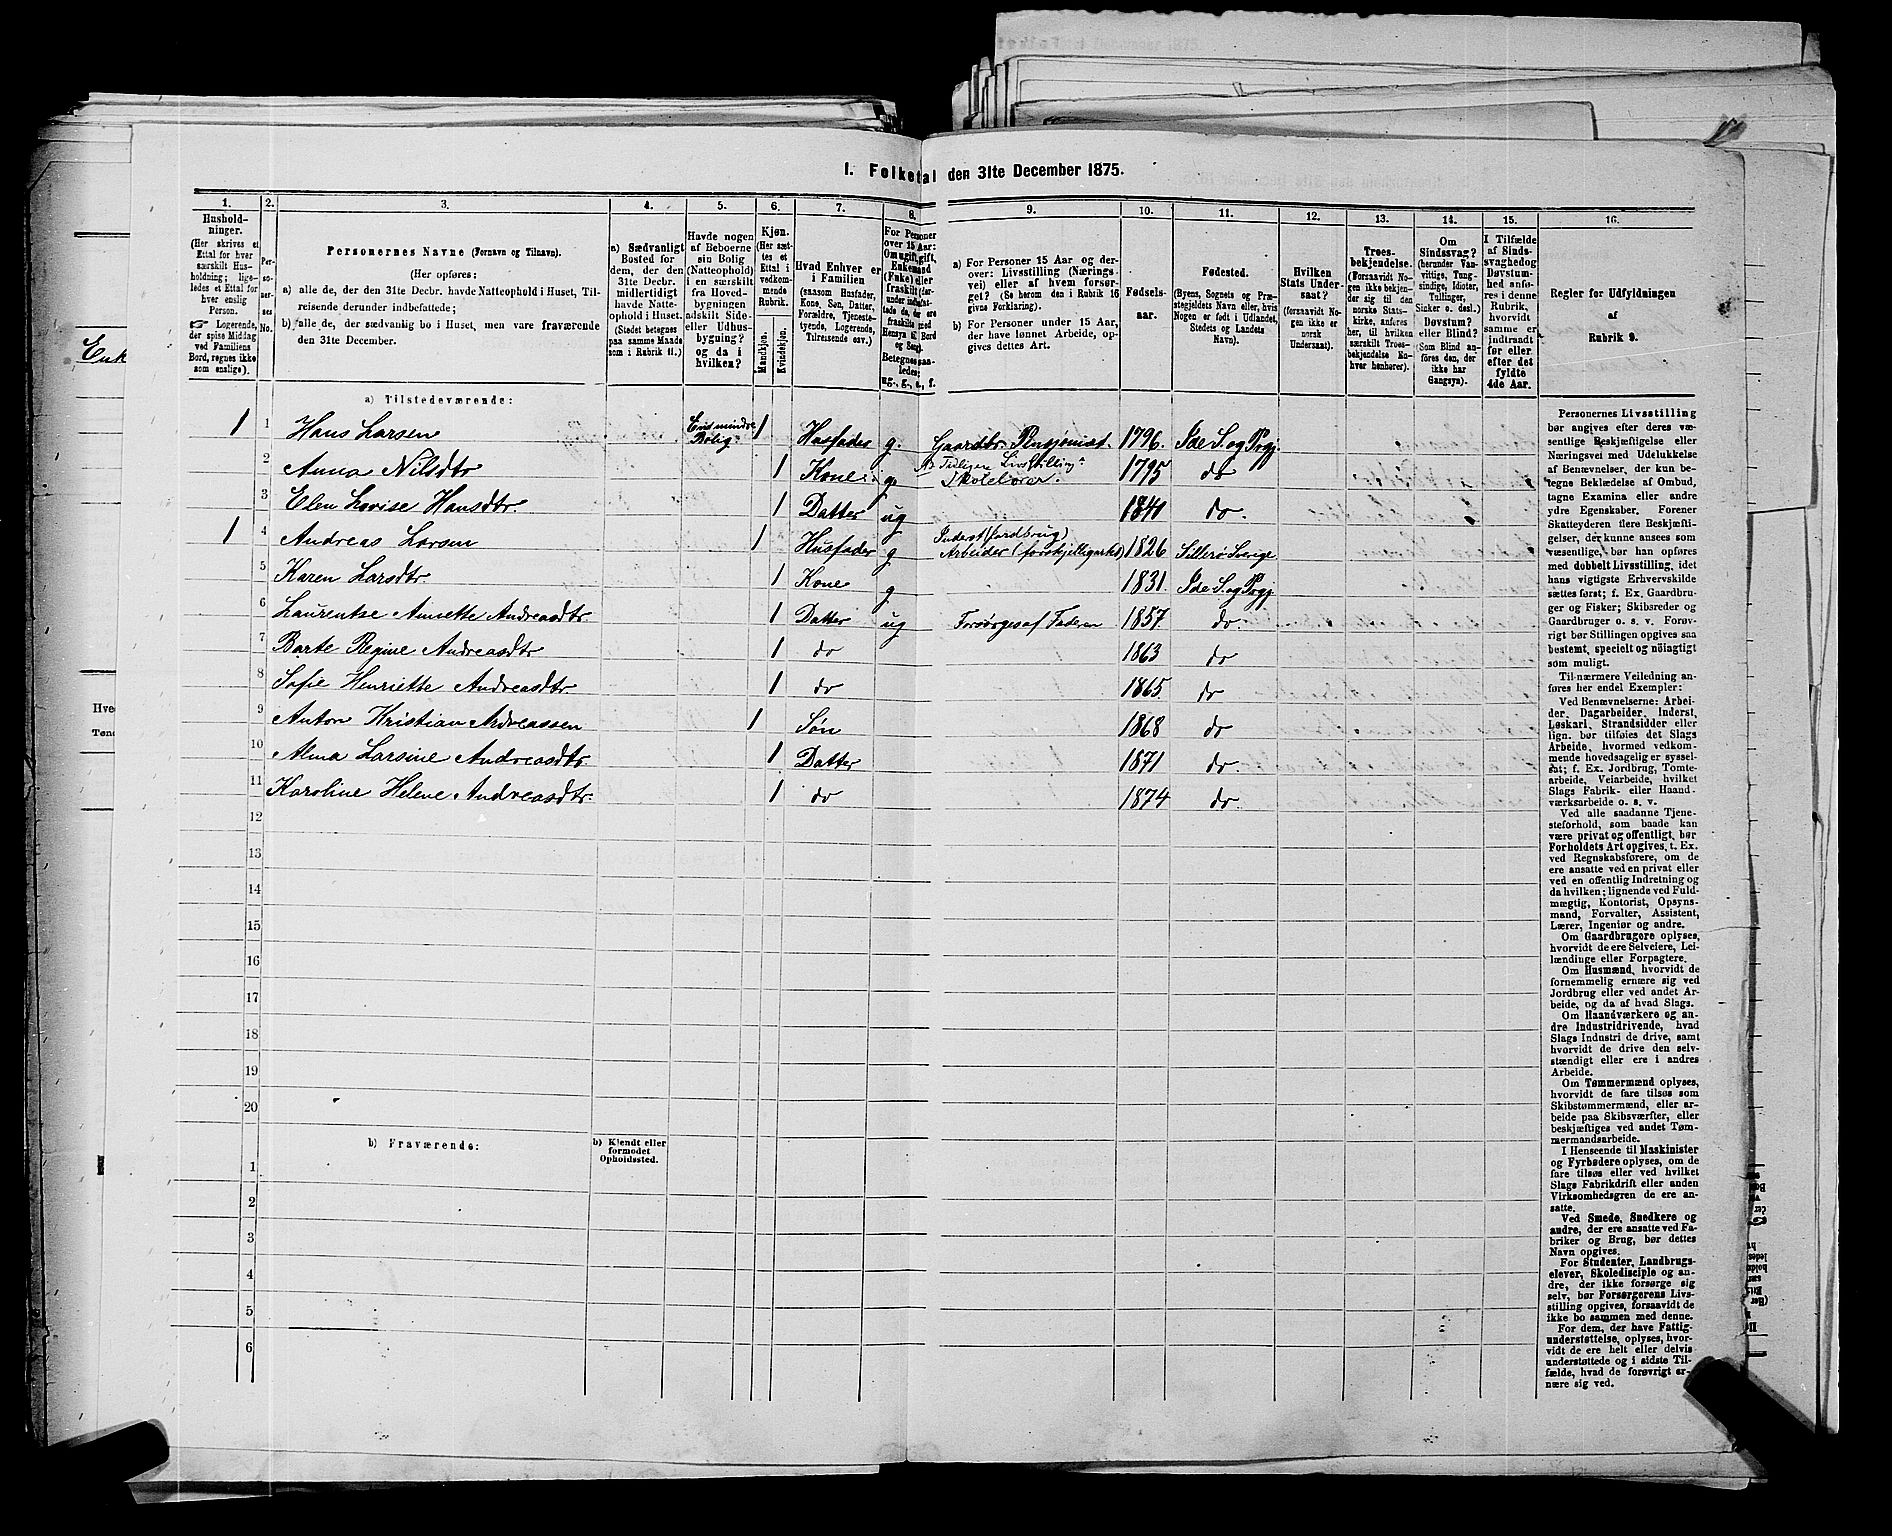 I. Folketal den 31te December 1875.
1. 2. 3. 4. 5. 6. 7. 8. 9. 10. 11. 12. 13. 14. 15. 16.
Hushold-
ninger.
(Her skrives et
Ettal for hver
særskilt Hus-
holdning; lige-
ledes et Ettal for
hver enslig
Person.
Logerende,
der spise Middag
ved Familiens
Bord, regnes ikke
som enslige).
Per-
so-
ner-
nes
No.
Personernes Navne (Fornavn og Tilnavn).
(Her opføres:
a) alle de, der den 31te Decbr. havde Natteophold i Huset, Til-
reisende derunder indbefattede;
b) alle de, der sædvanlig bo i Huset, men vare fraværende
den 31te December.
a) Sædvanligt
Bosted for
dem, der den
31te Decbr.
midlertidigt
havde Natte-
ophold i Huset.
(Stedet betegnes
paa samme Maade
som i Rubrik 11.)
Havde nogen
af Beboerne
sin Bolig
(Natteophold)
i en særskilt
fra Hoved-
bygningen
adskilt Side-
eller Udhus-
bygning?
og da i
hvilken?
Kjøn.
(Her sæt-
tes et
Ettal i
vedkom-
mende
Rubrik.
Mandkjøn.
Kvindekjøn.
Hvad Enhver er
i Familien
(saasom Husfader,
Kone, Søn, Datter,
Forældre, Tjeneste-
tyende, Logerende,
Tilreisende osv.)
For Personer
over 15 Aar:
Om ugift, gift,
Enkemand
(Enke) eller
fraskilt
ug., g., e., f.
a) For Personer 15 Aar og der-
over: Livsstilling (Nærings-
vei) eller af hvem forsør-
get? (Se herom den i Rubrik 16
givne Forklaring).
b) For Personer under 15 Aar,
der have lønnet Arbeide, op-
gives dettes Art.
Fødsels-
aar.
Fødested.
(Byens, Sognets og Præ-
stegjeldets Navn eller, hvis
Nogen er født i Udlandet,
Stedets og Landets
Navn).
Hvilken
Stats Under-
saat?
(forsaavidt No-
gen ikke er
norsk
Undersaat).
Troes-
bekjendelse.
(Forsaavidt No-
gen ikke bekjen-
der sig til den
norske Stats-
kirke, anføres
her, til hvilken
særskilt Troes-
bekjendelse En-
hver henhører).
Om
Sindssvag?
(herunder Van-
vittige, Tung-
sindige, Idioter,
Tullinger,
Sinker o. desl.)
Døvstum?
eller Blind?
(Som Blind an-
føres den, der
ikke har
Gangsyn).
I Tilfælde
af Sinds-
svaghed og
Døvstum-
hed anfø-
res i denne
Rubrik,
hvorvidt
samme er
indtraadt
før eller
efter det
fyldte
4de Aar.
Regler for Udfyldningen
af
Rubrik 9.
a) Tilstedeværende:
1 1 Hans Larsen En mindre Bolig 1 Husfader g. Gaardbr. Pensjonist. 1796. Ide S. og Prgj.
2 Anna Nilsdtr 1 Kone g. Tidligere Livsstilling: Skolelærer. 1795 do
3 Elen Lovise Hansdtr. 1 Datter ug 1840 do.
1 4 Andreas Larsen 1 Husfader g Inderst (Jordbrug) Arbeider (forskjelligarbd) 1826 Sillerø Sverige
5 Karen Larsdtr. 1 Kone g 1831. Ide S. og Prgj
6 Laurentse Annette Andreasdtr. 1 Datter ug Forsørges af Faderen 1857 do.
7 Barte Regine Andreasdtr 1 do 1863 do
8 Sofie Henriette Andreasdtr 1 do 1865. do
9 Anton Kristian Andreassen 1 Søn 1868 do
10 Alma Larsine Andreasdtr. 1 Datter 1871 do.
11 Karoline Helene Andreasdtr. 1 do 1874 do.
12
13
14
15
16
17
18
19
20
b) Fraværende:
b) Kjendt eller
formodet
Opholdssted.
1
2
3
4
5
6
Personernes Livsstilling
bør angives efter deres væ-
sentlige Beskjæftigelse eller
Næringsvei med Udelukkelse
af Benævnelser, der kun be-
tegne Beklædelse af Ombud,
tagne Examina eller andre
ydre Egenskaber. Forener
Skatteyderen flere Beskjæfti-
gelser, der kunne ansees som
væsentlige, bør han opføres
med dobbelt Livsstilling, idet
hans vigtigste Erhvervskilde
sættes først; f. Ex. Gaardbru-
ger og Fisker; Skibsreder og
Gaardbruger o. s. v. Forøv-
rigt bør Stillingen opgives saa
bestemt, specielt og nöiagtigt
som muligt.
Til nærmere Veiledning an-
føres her endel Exempler:
Ved Benævnelserne: Arbei-
der, Dagarbeider, Inderst,
Løskarl, Strandsidder eller
lign. bør tilføies det Slags
Arbeide, hvormed vedkom-
mende hovedsagelig er syssel-
sat; f. Ex. Jordbrug, Tomte-
arbeide, Veiarbeide, hvilket
Slags Fabrik- eller Haand-
værksarbeide o. s. v.
Ved alle saadanne Tjene-
steforhold, som baade kan
være privat og offentligt, bør
Forholdets Art opgives, t. Ex.
ved Regnskabsførere, om de
ere ansatte ved en privat eller
ved en offentlig Indretning og
da hvilken; lignende ved Fuld-
mægtig, Kontorist, Opsyns-
mand, Forvalter, Assistent,
Lærer, Ingeniør og andre.
Om Gaardbrugere oplyses,
hvorvidt de ere Selveiere, Lei-
lændinge eller Forpagtere.
Om Husmænd, hvorvidt de
fornemmelig ernære sig ved
Jordbrug eller ved andet Ar-
beide, og da af hvad Slags.
Om Haandværkere og an-
dre Industridrivende, hvad
Slags Industri de drive, samt
hvorvidt de drive den selv-
stændigt eller ere i andres
Arbeide.
Om Tømmermænd oplyses,
hvorvidt de fare tilsøs som
Skibstømmermænd, eller ar-
beide paa Skibsværfter, eller
beskjæftiges ved andet Tøm-
mermandsarbeide.
I Henseende til Maskinister
og Fyrbødere oplyses, om de
fare tilsøs eller ved hvilket
Slags Fabrikdrift eller anden
Virksomhedsgren de ere an-
satte.
Ved Smede, Snedkere og
andre, der ere ansatte ved Fa-
briker og Brug, bør dettes
Navn opgives.
For Studenter, Landbrugs-
elever, Skoledisciple og an-
dre, der ikke forsørge sig
selv, bør Forsørgerens Livs-
stilling opgives, forsaavidt de
ikke bo sammen med denne.
For dem, der have Fattig-
understøttelse, oplyses, hvor-
vidt de ere helt eller delvis
understøttede og i sidste Til-
fælde, hvad de forøvrigt er-
nære sig ved.